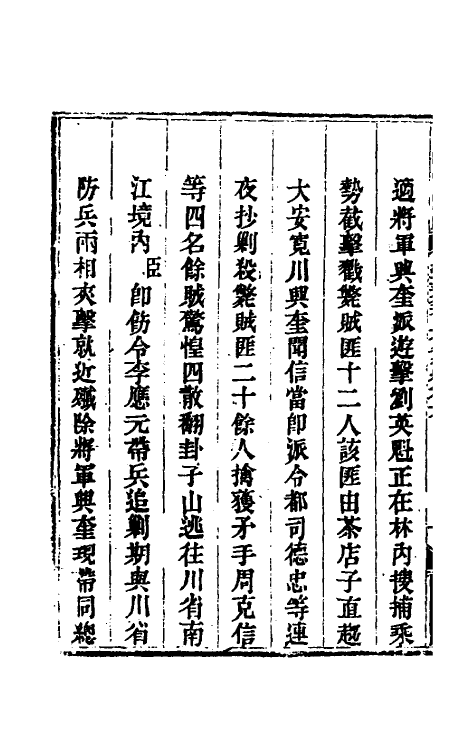 適將軍興奎派遊擊劉英魁正在林內搜捕乘
勢截擊戳斃賊匪十二人該匪由茶店子直趨
大安寬川興奎聞信當卽派令都司德忠等連
夜抄剿殺斃賊匪二十餘人擒獲矛手周克信
等四名餘賊驚惶四散翻卦子山逃往川省南
江境內臣卽飭令李應元帶兵追剿期與川省
防兵兩相夾擊就近殲除將軍興奎現帶同總